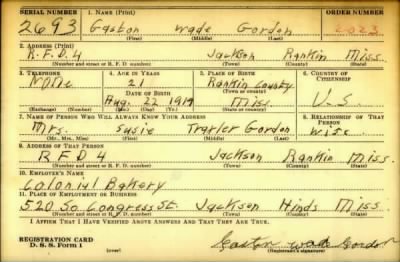 SERIAL NUMBER 1. NAME (Print) ORDER NUMBER
2693 Gaston Wade Gordon 2023
(First) (Middle) (Last)
2. ADDRESS (Print)
R.F.D 4 Jackson Rankin Miss.
(Number and street or R. F. D. number) (Town) (County) (State)
3. TELEPHONE 4. AGE IN YEARS 5. PLACE OF BIRTH 6. COUNTRY OF CITIZENSHIP
None 21 Rankin County
DATE OF BIRTH (Town or county)
Aug. 22 1919 Miss. U.S.
(Exchange) (Number) (Mo.) (Day) (Yr.) (State or country)
7. NAME OF PERSON WHO WILL ALWAYS KNOW YOUR ADDRESS 8. RELATIONSHIP OF THAT PERSON
Mrs. Susie Traxler Gordon wife
(Mr., Mrs., Miss) (First) (Middle) (Last)
9. ADDRESS OF THAT PERSON
RFD 4 Jackson Rankin Miss.
(Number and street or R. F. D. number) (Town) (County) (State)
10. EMPLOYER'S NAME
Colonial Bakery
11. PLACE OF EMPLOYMENT OR BUSINESS
520 So. Congress St. Jackson Hinds Miss
(Number and street or R. F. D. number) (Town) (County) (State)
I AFFIRM THAT I HAVE VERIFIED ABOVE ANSWERS AND THAT THEY ARE TRUE.
REGISTRATION CARD
D. S. S. Form 1 (over) Gaston Wade Gordon
(Registrant's signature)